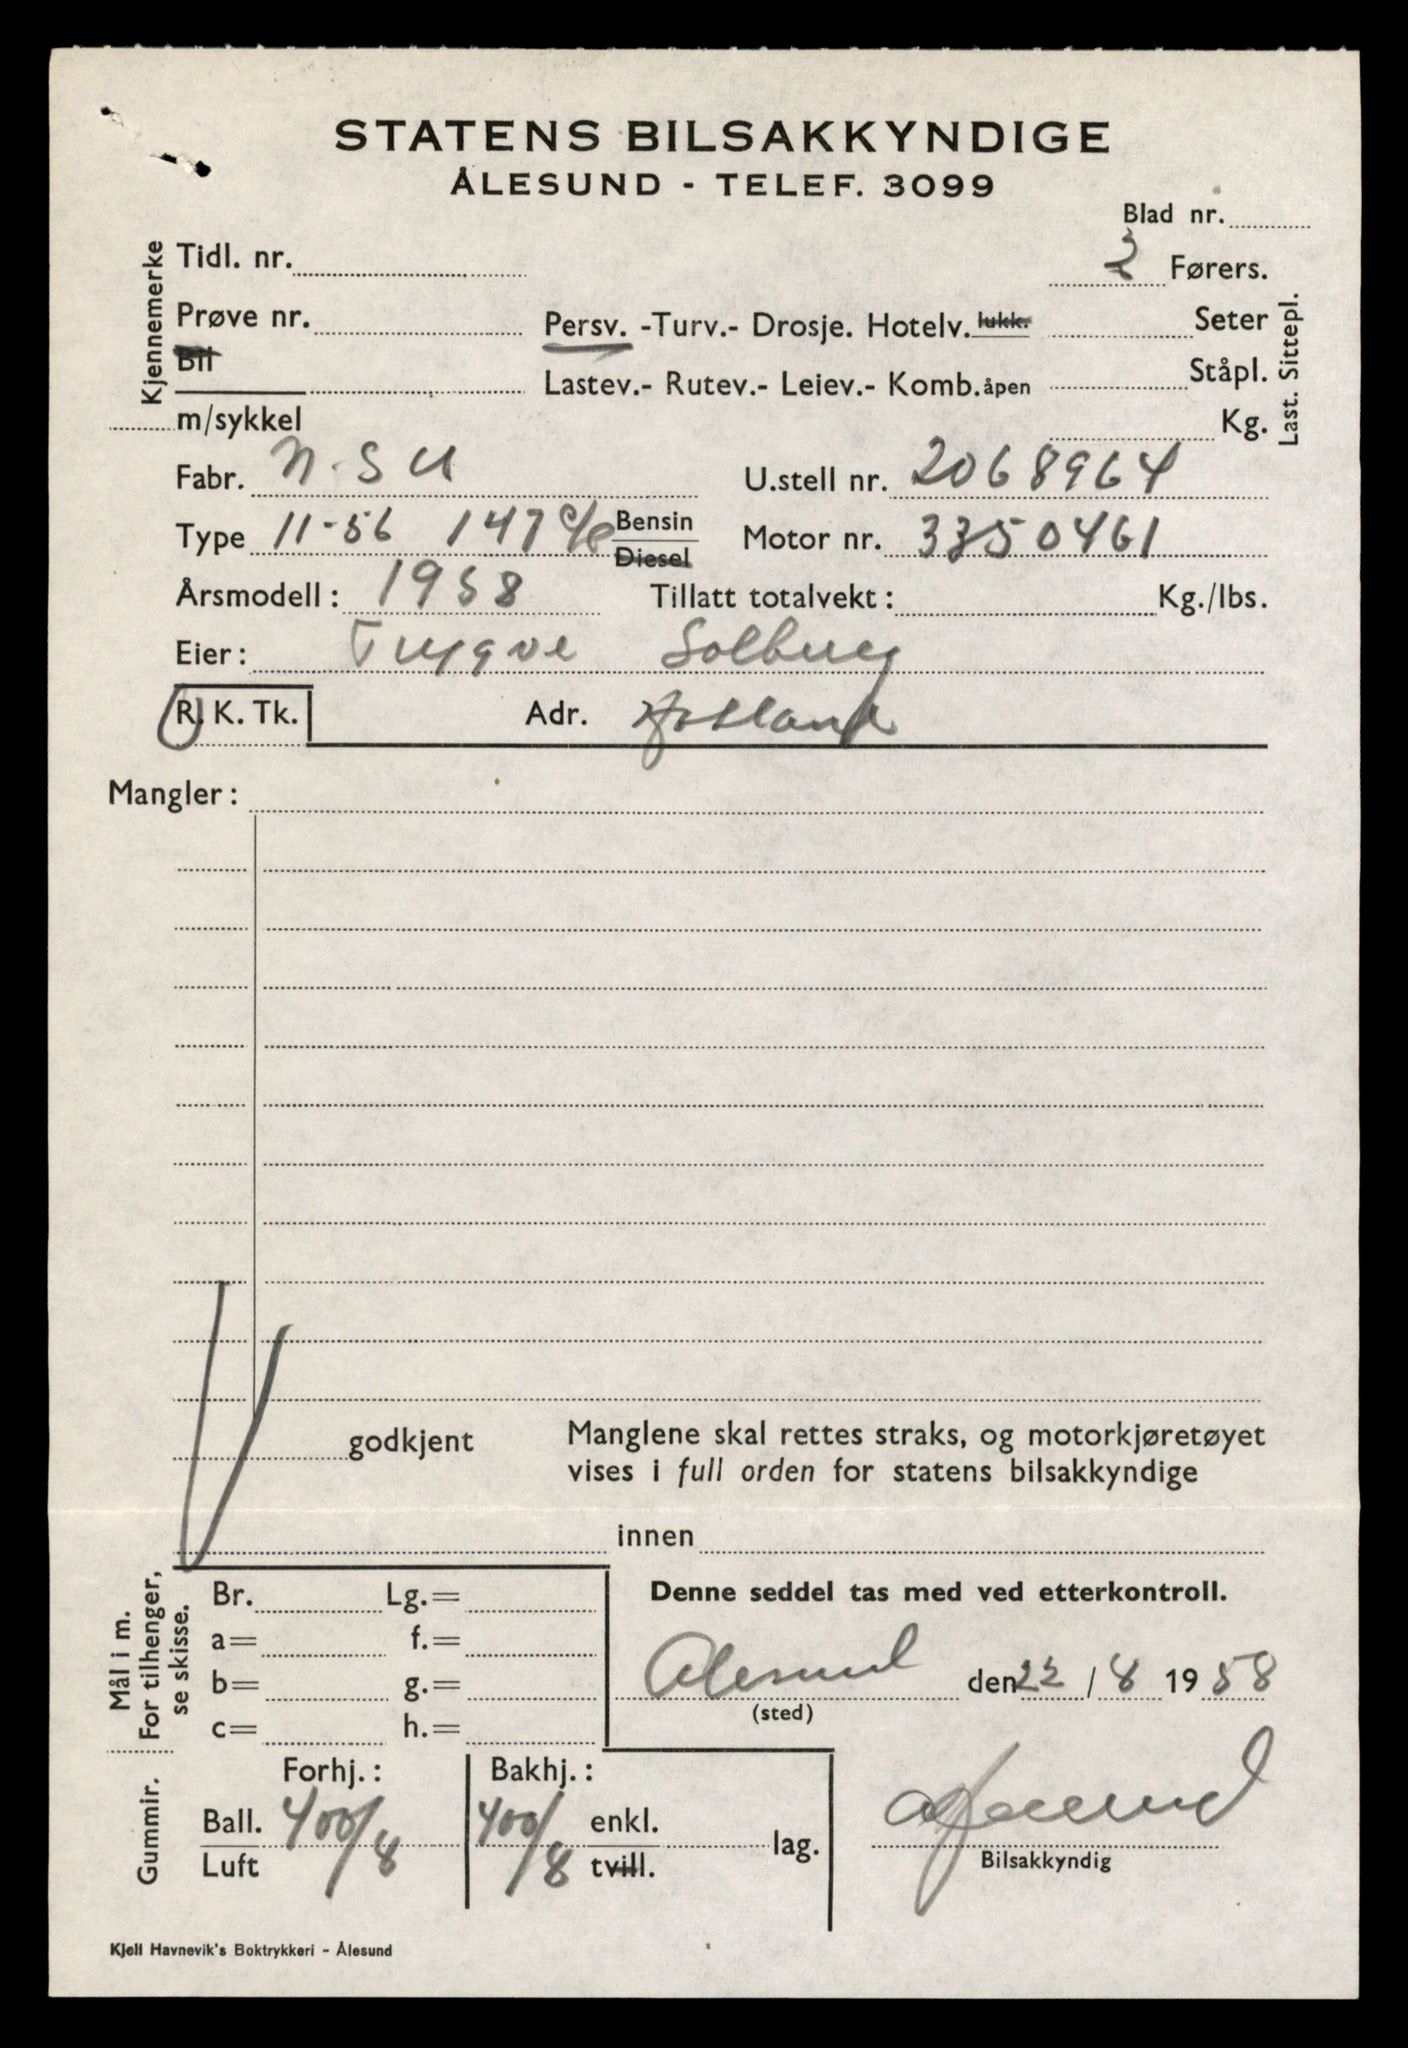 STATENS BILSAKKYNDIGE
ÅLESUND - TELEF. 3099
Blad nr.
Kjennemerke
Tidl. nr.
2 Førers.
Prøve nr.
Persv. -Turv.- Drosje. Hotelv. lukk.
Seter
Bil
Lastev.- Rutev.- Leiev.- Komb. åpen
Ståpl.
m/sykkel
Kg.
Last. Sittepl.
Fabr. N.S.U
U.stell nr. 2068964
Type 11-56 147 c/c Bensin
Diesel
Motor nr. 3350461
Årsmodell: 1958
Tillatt totalvekt: Kg./lbs.
Eier: Trygve Solberg
R. K. Tk.
Adr.
Mangler:
godkjent
Manglene skal rettes straks, og motorkjøretøyet
vises i full orden for statens bilsakkyndige
innen
Mål i m.
For tilhenger,
se skisse.
Br. Lg.=
a= f.=
b= g.=
c= h.=
Denne seddel tas med ved etterkontroll.
Ålesund den 22 / 8 1958
(sted)
Gummir.
Forhj.:
Bakhj.:
Ball. 400/8
400/8 enkl.
lag.
Luft
tvill.
Bilsakkyndig
Kjell Havnevik's Boktrykkeri - Ålesund